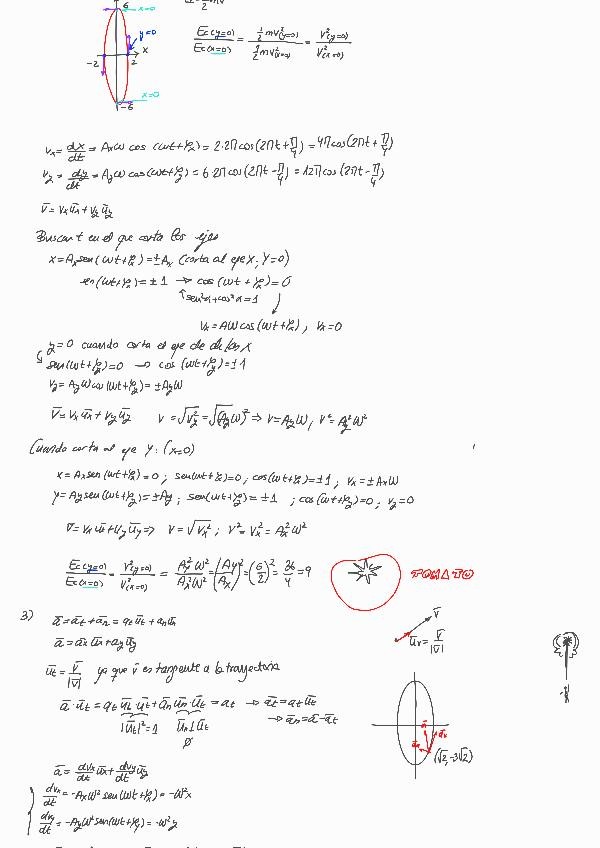 6 x=0
y=0
x
-2 2
x=0
-6
Ec(y=0)/Ec(x=0) = ½mv²(y=0)/½mv²(x=0) = V²(y=0)/V²(x=0)
Vx = dx/dt = AxW cos(wt+φx) = 2·2π cos(2πt+π/4) = 4π cos(2πt+π/4)
Vy = dy/dt = AyW cos(wt+φy) = 6·2π cos(2πt-π/4) = 12π cos(2πt-π/4)
V̄ = Vx ūx + Vy ūy
Buscar t en el que corta los ejes
x = Ax sen(wt+φx) = ±Ax (corta al eje X, Y=0)
sen(wt+φx) = ±1 → cos(wt+φx) = 0
sen²α+cos²α=1
Vx = AW cos(wt+φx), Vx = 0
y=0 cuando corta el eje de las X
sen(wt+φy) = 0 → cos(wt+φy) = ±1
Vy = AyW cos(wt+φy) = ±AyW
V̄ = Vx ūx + Vy ūy V = √Vy² = √(AyW)² ⇒ V = AyW, V² = Ay²W²
Cuando corta al eje Y: (x=0)
x = Ax sen(wt+φx) = 0; sen(wt+φx) = 0, cos(wt+φx) = ±1, Vx = ±AxW
y = Ay sen(wt+φy) = ±Ay; sen(wt+φy) = ±1; cos(wt+φy) = 0; Vy = 0
V̄ = Vx ūx + Vy ūy ⇒ V = √Vx²; V² = Vx² = Ax²W²
Ec(y=0)/Ec(x=0) = V²(y=0)/V²(x=0) = Ay²W²/Ax²W² = (Ay/Ax)² = (6/2)² = 36/4 = 9
TOMATO
3) ā = āt + ān = at ūt + an ūn
ā = ax ūx + ay ūy
V̄
ūv = V̄/|V̄|
ūt = V̄/|V̄| ya que v̄ es tangente a la trayectoria
ā·ūt = at ūt·ūt + an ūn·ūt = at → āt = at ūt
|ūt|² = 1 ūn⊥ūt → ān = ā - āt
0
(√2, -3√2)
ā = dVx/dt ūx + dVy/dt ūy
dVx/dt = -AxW² sen(wt+φx) = -W²x
dVy/dt = -AyW² sen(wt+φy) = -W²y